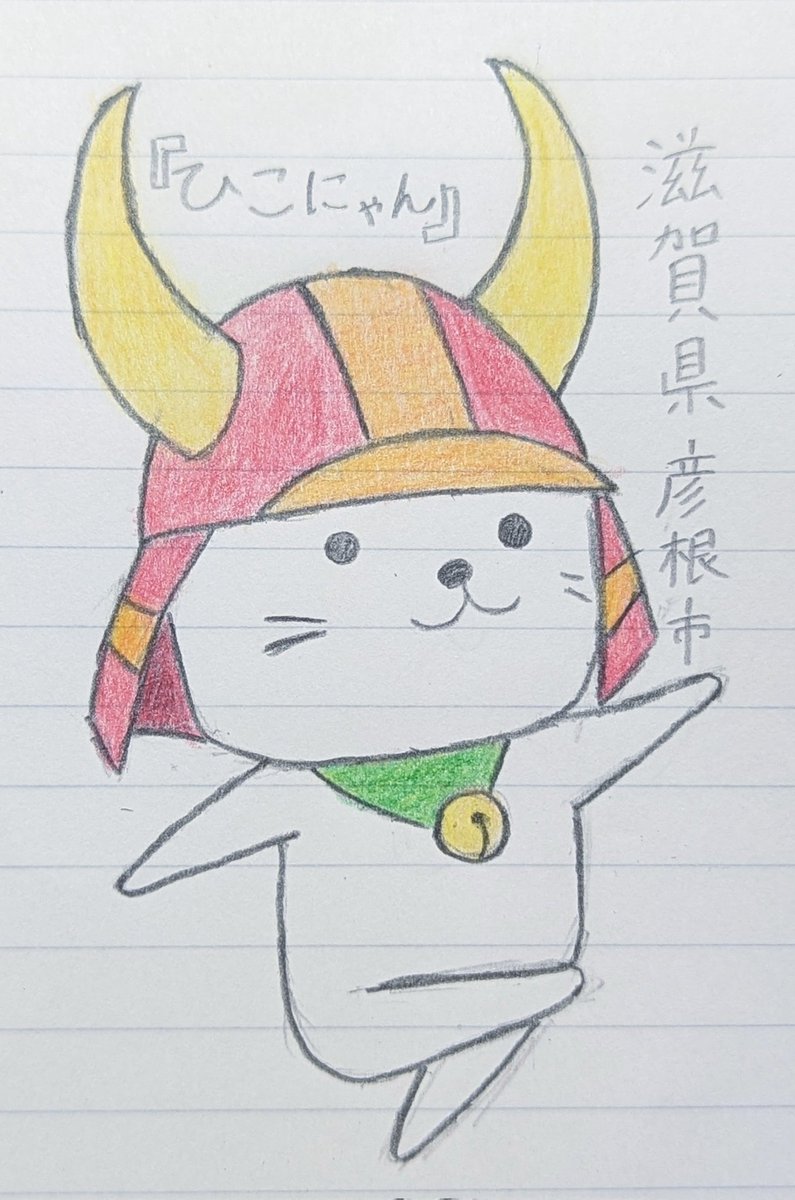 『ひこにゃん』
滋賀県彦根市